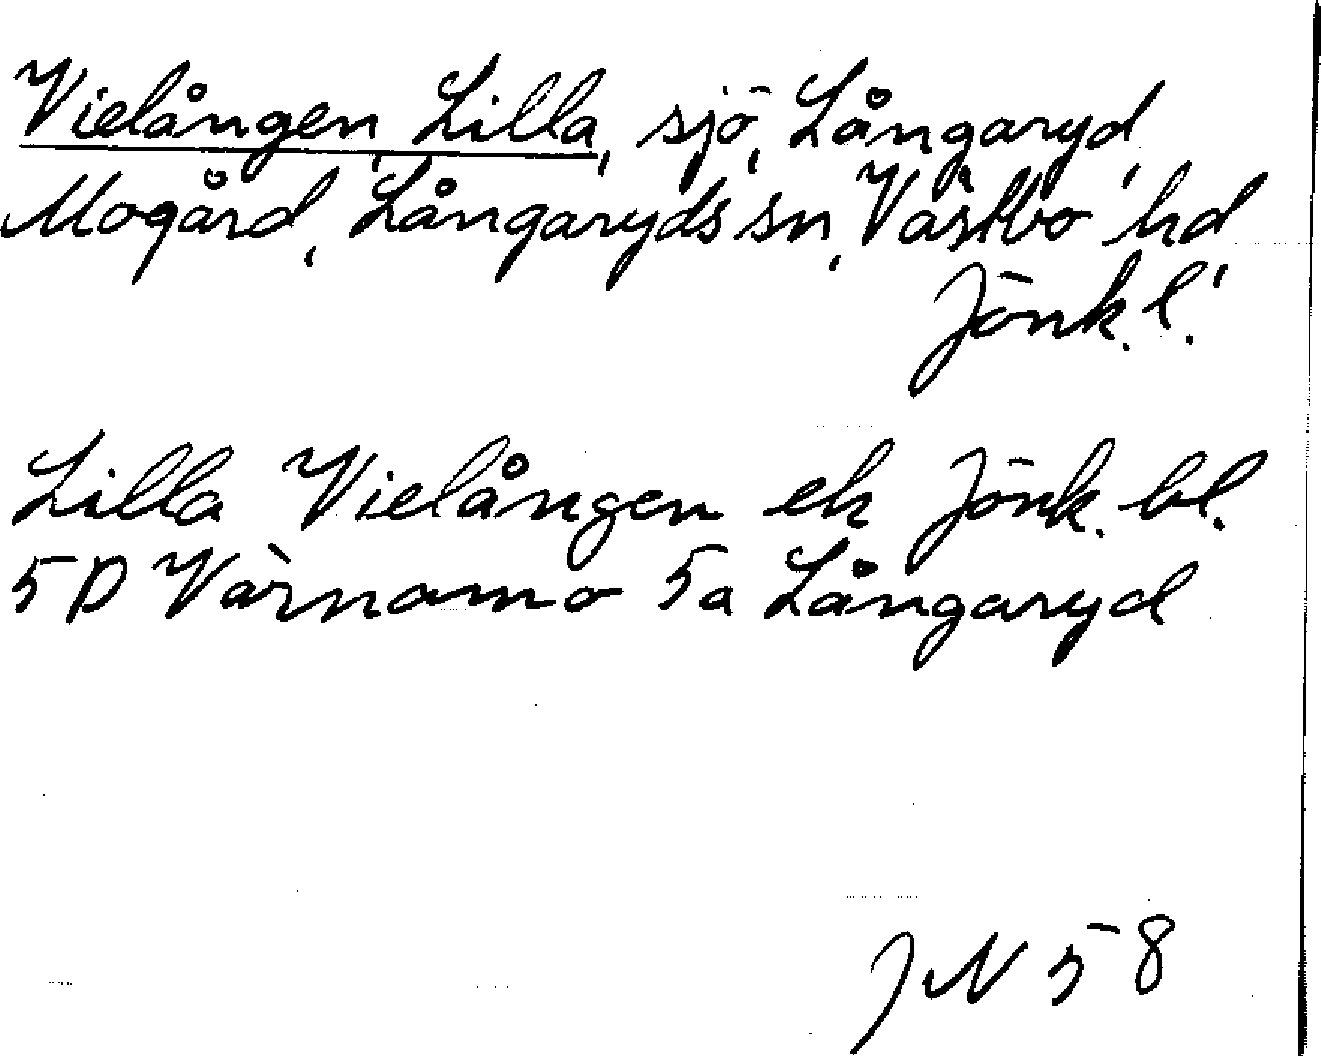 Vielången, Lilla, sjö, Långaryd,
Mogård, Långaryds sn, Västbo hd,
Jönk. l.
Lilla Vielången ek Jönk. bl.
5D Värnamo 5a Långaryd
JN 58